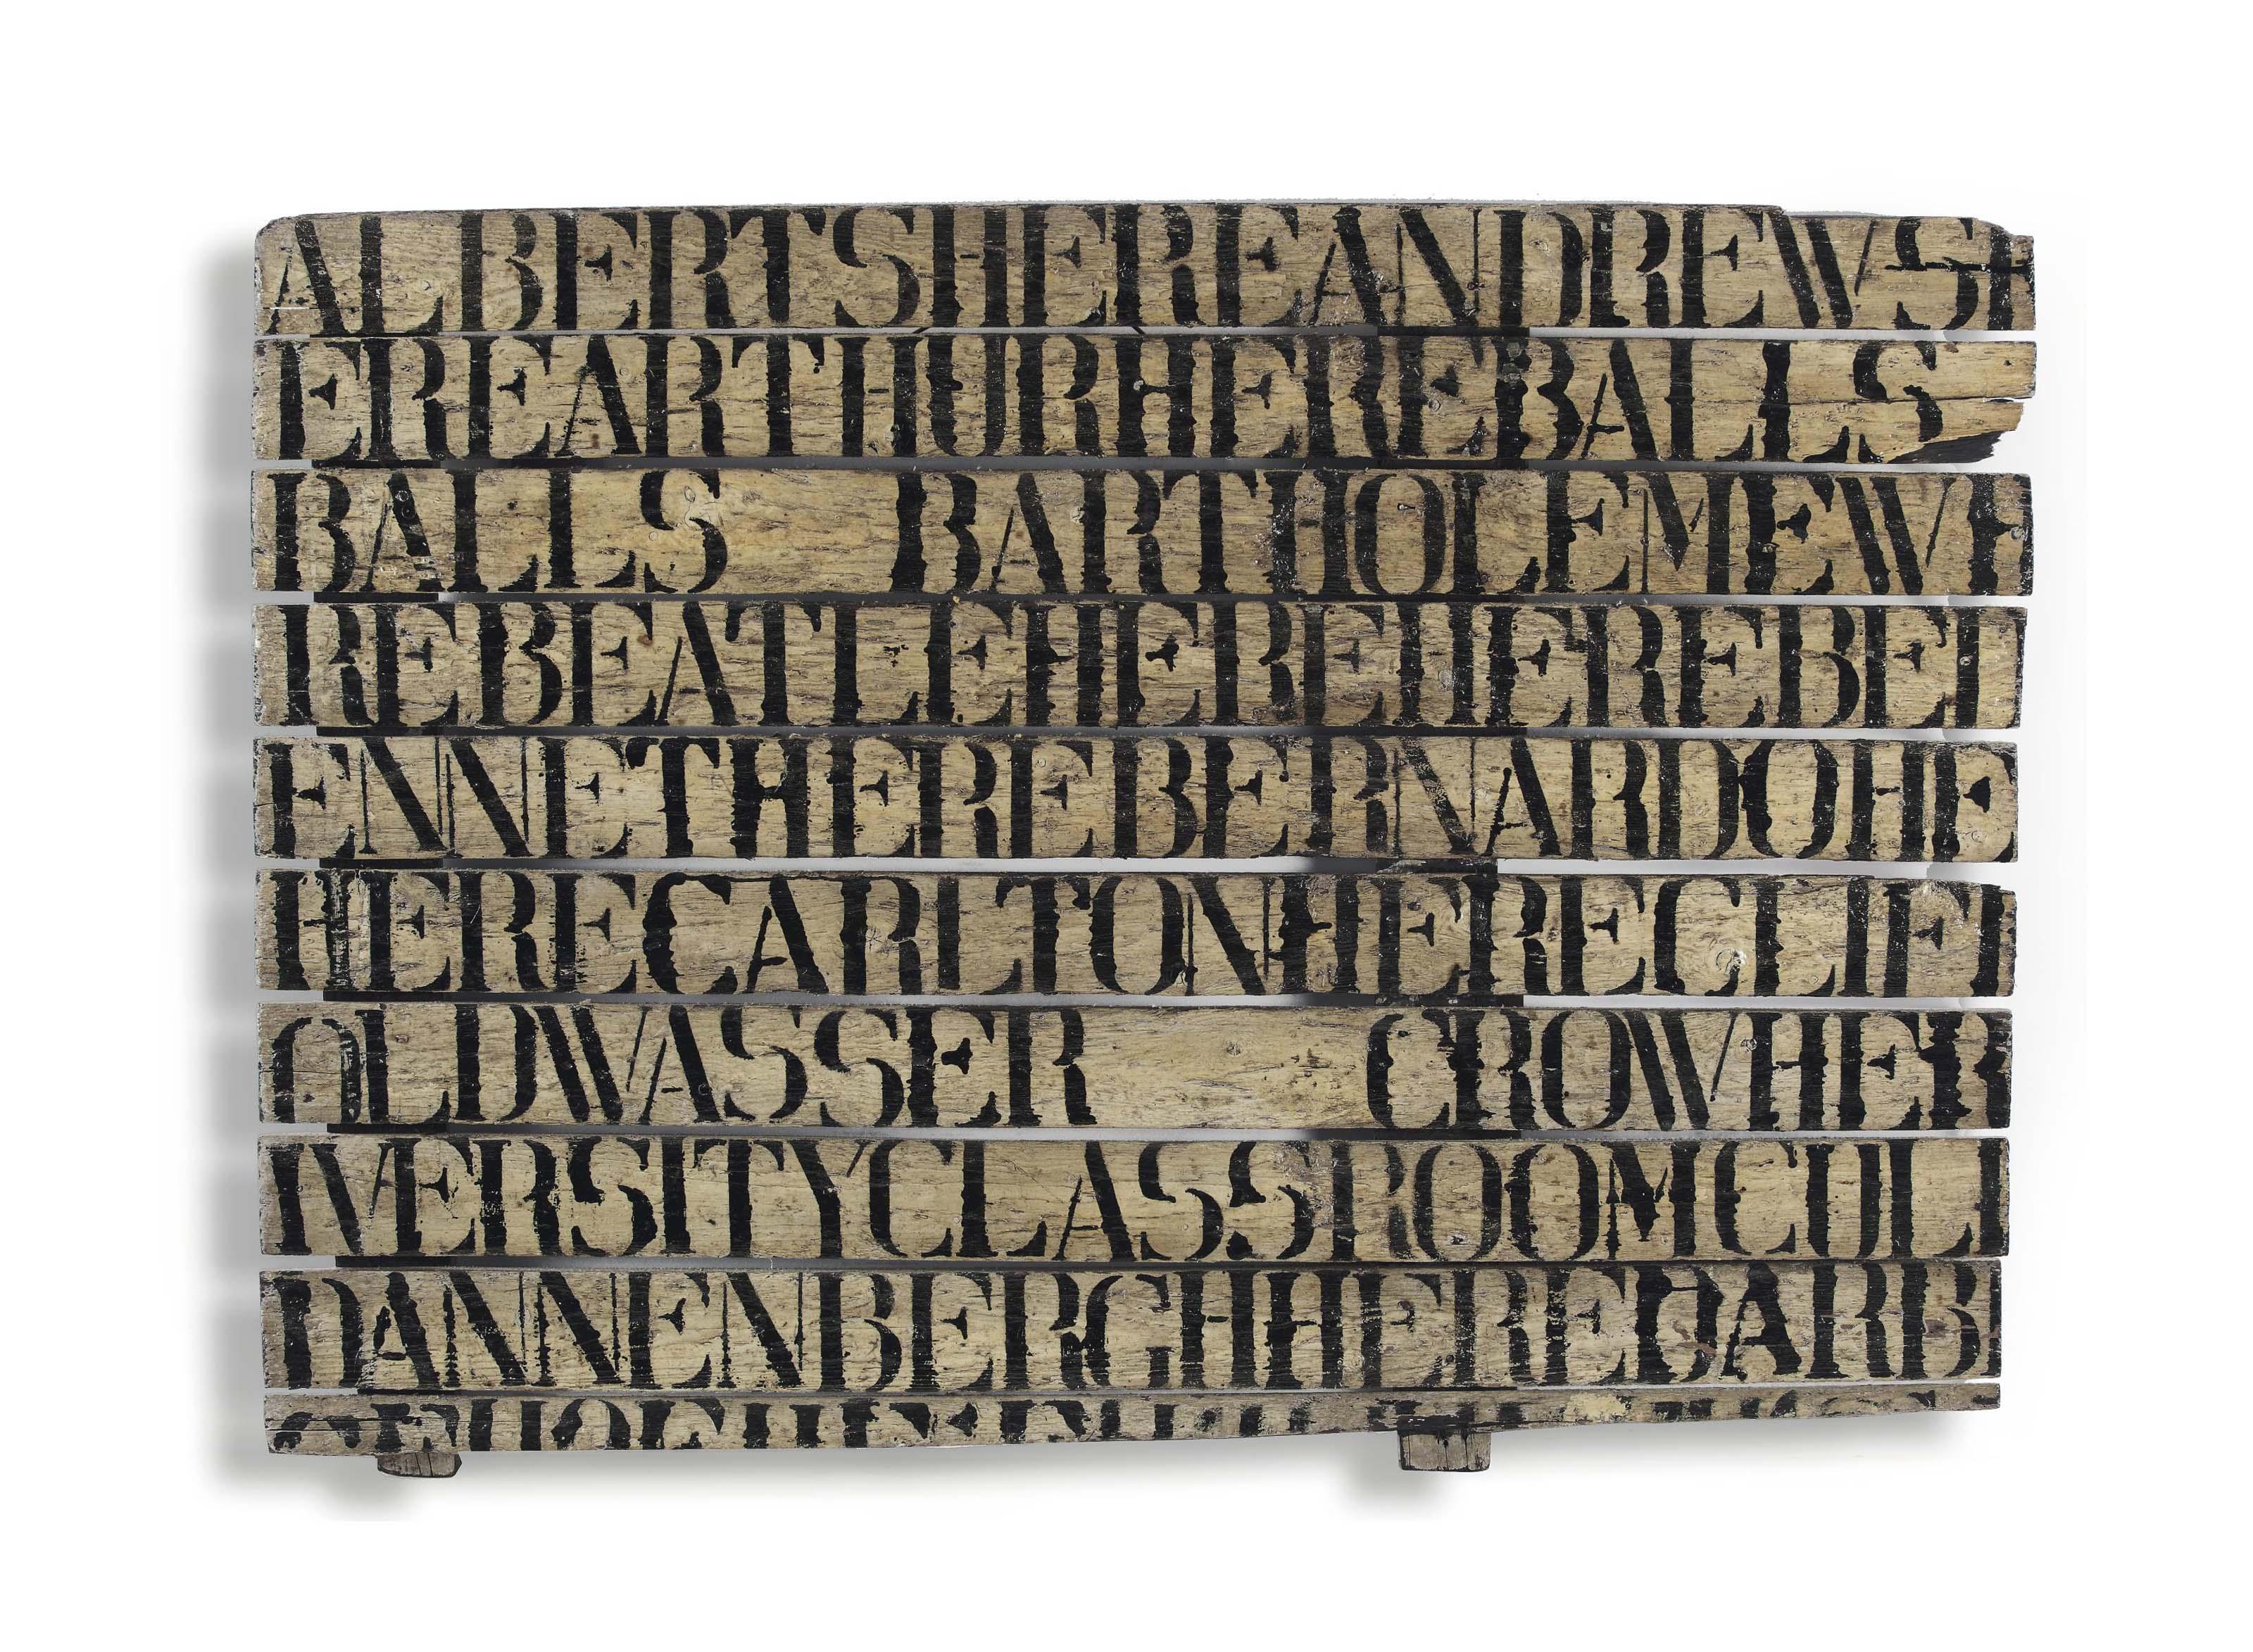 ALBERTSHEREANDREWSH
EREARTHURHEREBALLS
BALLS BARTHOLEMEWH
REBEATLEHEREHEREBET
ENNETHEREBERNARDOHE
HERECARLTONHERECLIFF
OLDWASSER CROWHER
IVERSITYCLASSROOMCULL
DANNENBERGHHEREDARB